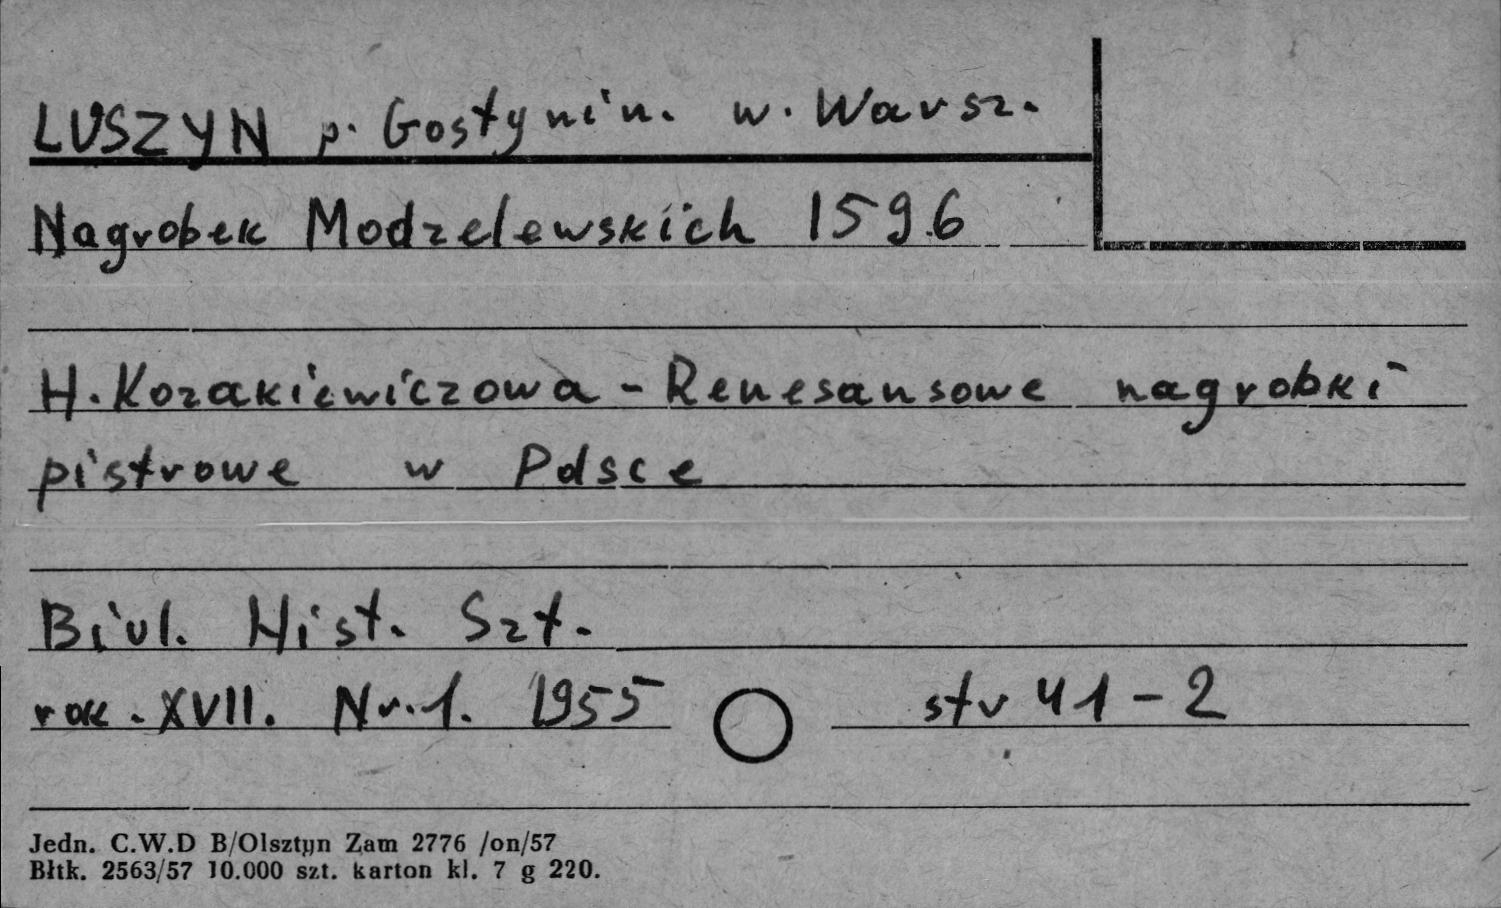 LUSZYN p. Gostynin. w. Warsz.
Nagrobek Modzelewskich 1596
H. Kozakiewiczowa - Renesansowe nagrobki
pistrowe w Polsce
Biul. Hist. Szt.
rok. XVII. Nr. 1. 1955 str 41-2
Jedn. C.W.D B/Olsztyn Zam 2776 /on/57
Błtk. 2563/57 10.000 szt. karton kl. 7 g 220.